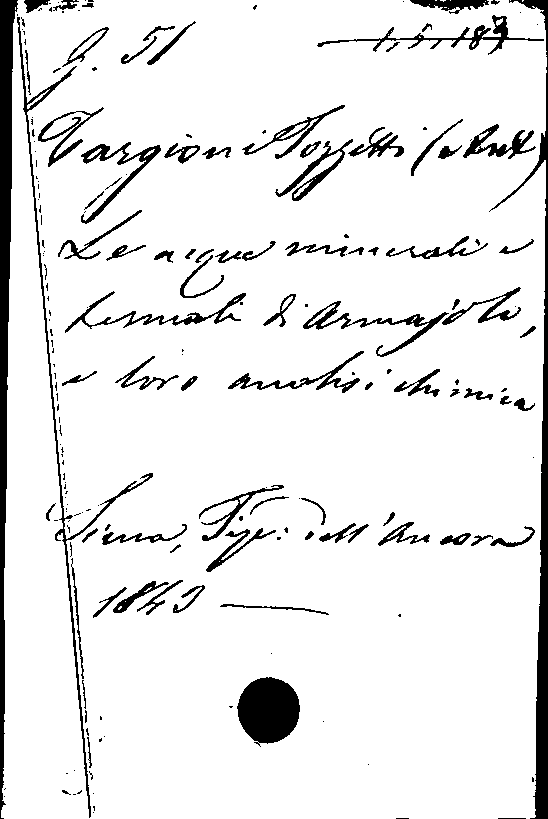 G. 51 1, 5, 183
Targioni Tozzetti (
Le acque minerali e
termali di Armajolo,
e loro analisi chimica
Siena, Tip: dell'Ancora
1843